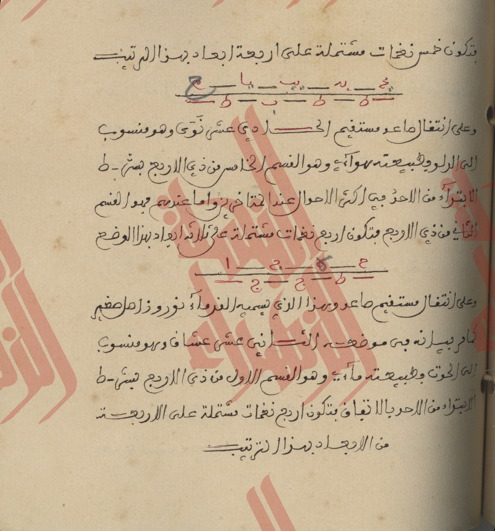 فتكون خمس نغمات مشتملة على اربعة ابعاد بهذا الترتيب
يح — يه — يب — يا — ح
ط — ط — ب — ط
وعلى انتقال صاعد مستقيم الحادي عشر نوى وهو منسوب
الى الدلو وطبيعته هوآء وهو القسم الخامس من ذي الاربع بشرط
الابتداء من الاحد في اكثر الاحوال عند المتاخرين واما عندهم فهو القسم
الثاني من ذي الاربع فتكون اربع نغمات مشتملة على ثلاثة ابعاد بهذا الوضع
ح — — ج — ا
ط — ج — ج
وعلى انتقال مستقيم صاعد وهذا الذي يسميه القدمآء نوروز اصل
بيانه في موضعه الثاني عشر عشاق وهو منسوب
الى الحوت وطبيعته مآء وهو القسم الاول من ذي الاربع بشرط
الابتداء من الاحد بالاتفاق فتكون اربع نغمات مشتملة على الاربعة
من الابعاد بهذا الترتيب